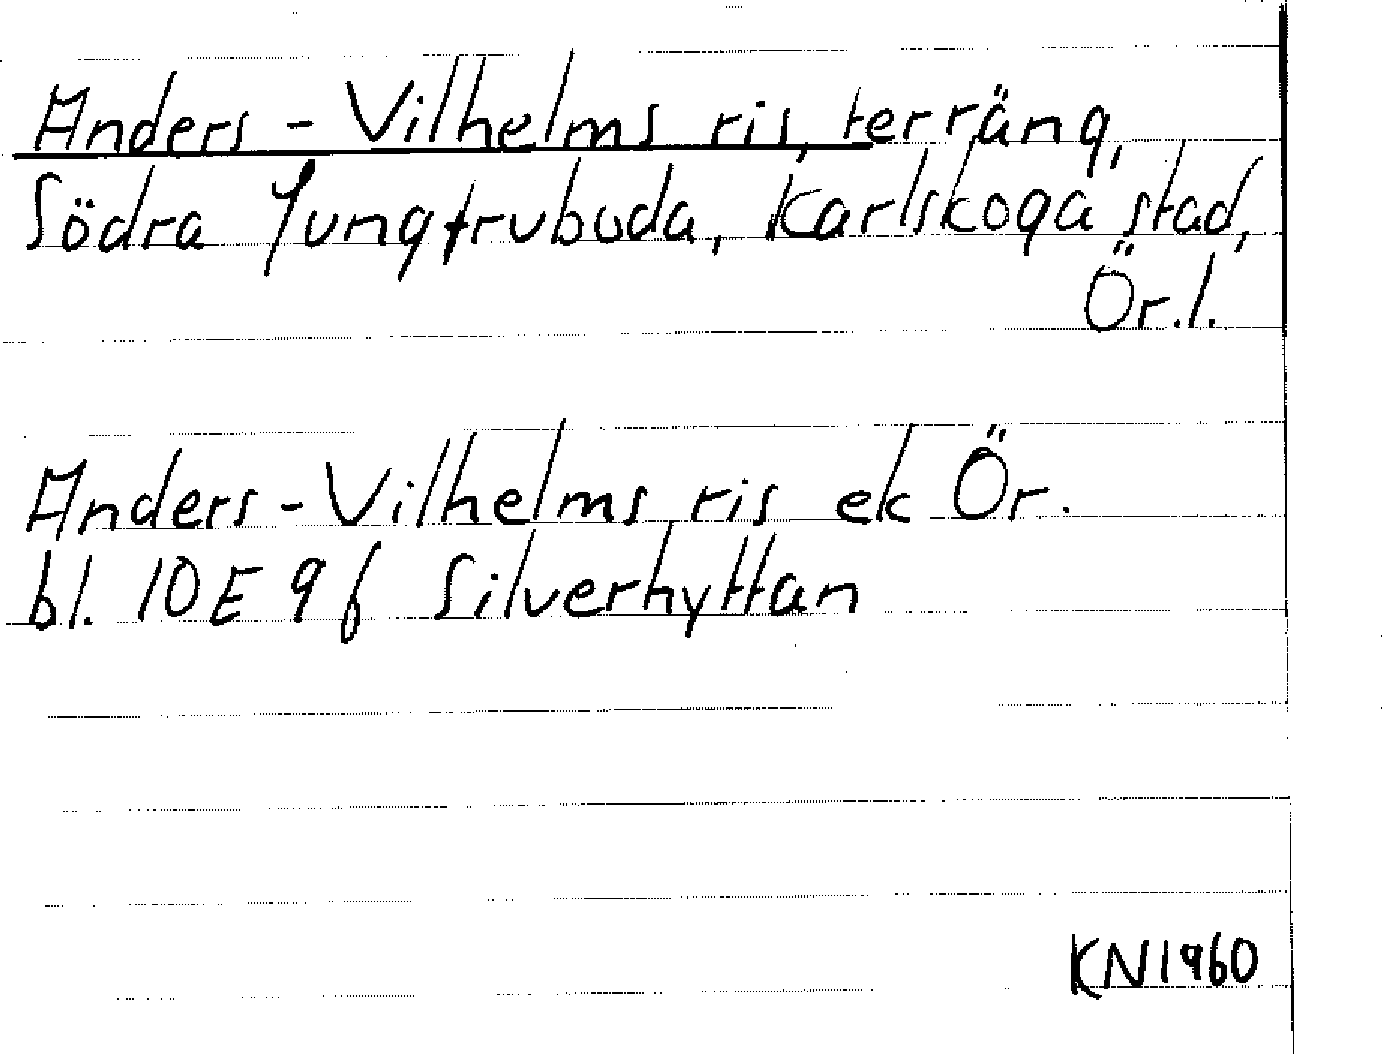 Anders-Vilhelms ris, terräng,
Södra Jungfruboda, Karlskoga stad,
Ör.l.
Anders-Vilhelms ris ek Ör.
bl. 10E 9f Silverhyttan
KN1960